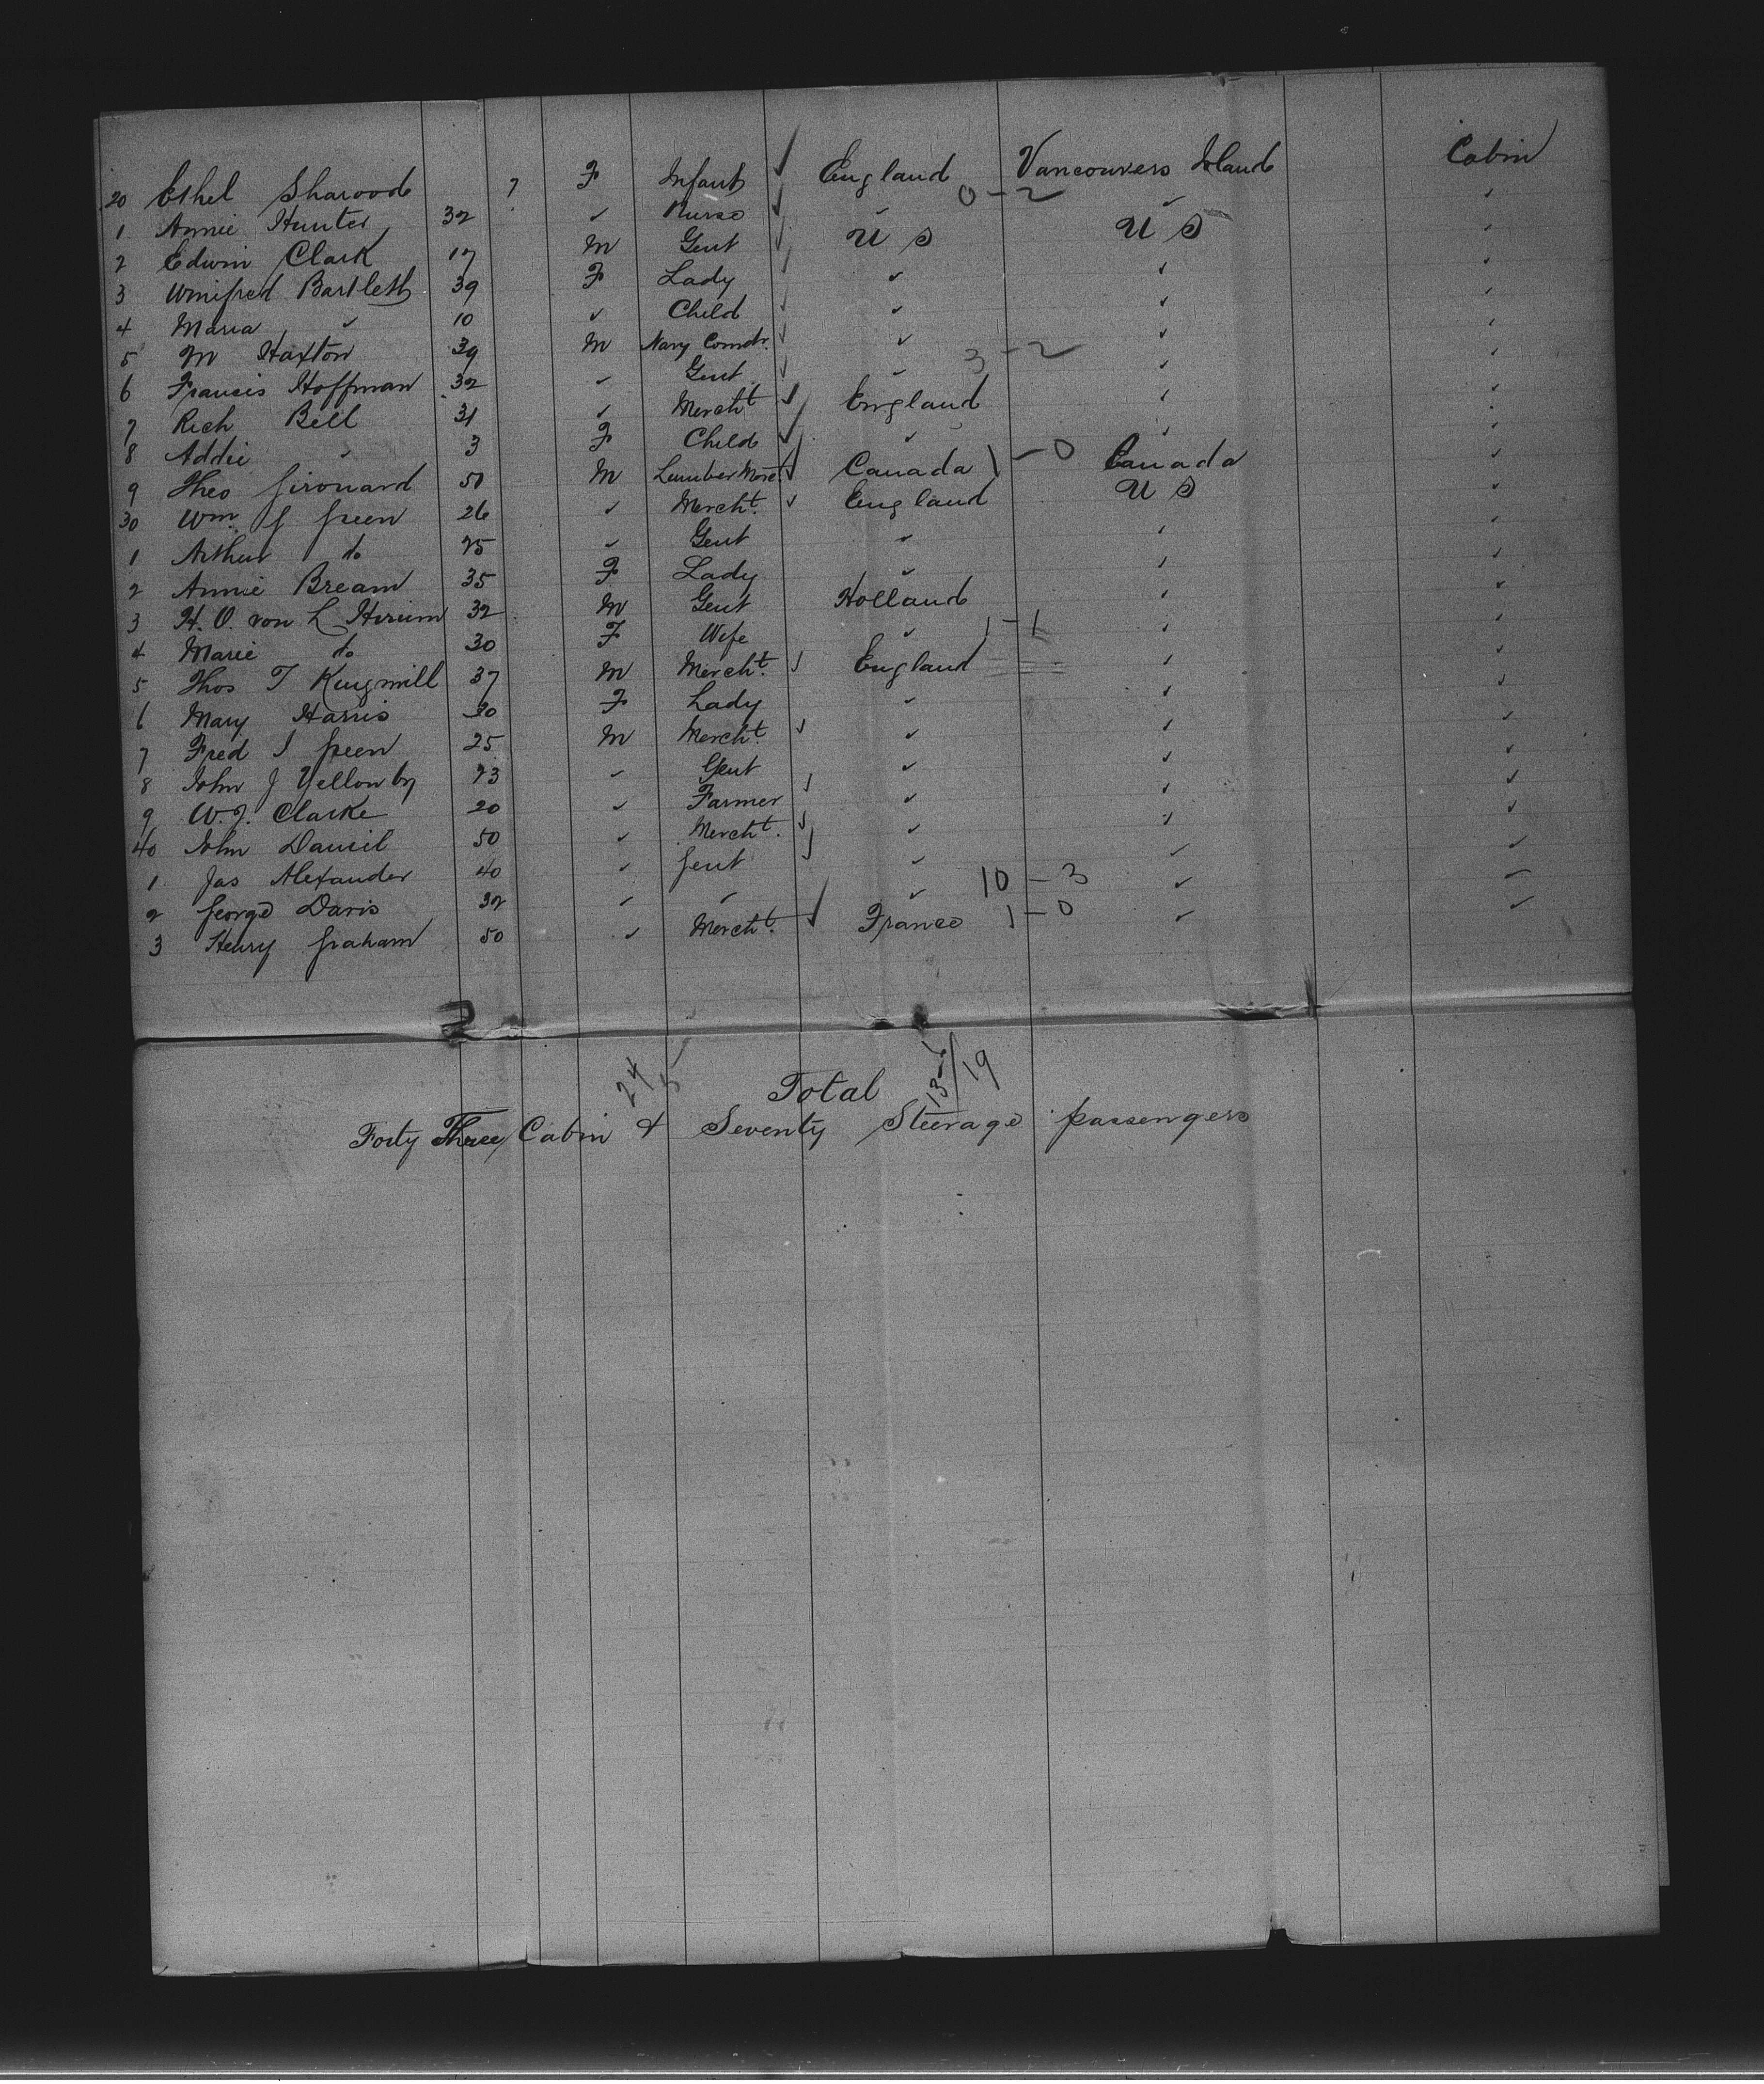 20 Ethel Sharood 7 F Infant ✓ England Vancouvers Island Cabin
0 - 2
1 Annie Hunter 32 ✓ Nurse ✓ ✓ ✓ ✓
2 Edwin Clark 17 M Gent ✓ U S U S ✓
3 Winifred Bartlett 39 F Lady ✓ ✓ ✓ ✓
4 Maria ✓ 10 ✓ Child ✓ ✓ ✓ ✓
5 M Haxton 39 M Navy Comdr. ✓ ✓ ✓ ✓
3 - 2
6 Francis Hoffman 32 ✓ Gent ✓ ✓ ✓ ✓
7 Rich Bell 31 ✓ Mercht ✓ England ✓ ✓
8 Addie ✓ 3 F Child ✓ ✓ ✓ ✓
9 Theo Girouard 50 M Lumber ✓ Canada 1 - 0 Canada ✓
30 Wm J Green 26 ✓ Mercht. ✓ England U S ✓
1 Arthur do 25 ✓ Gent ✓ ✓ ✓
2 Annie Bream 35 F Lady ✓ ✓ ✓
3 H. O. von L 32 M Gent Holland ✓ ✓
4 Marie do 30 F Wife ✓ 1 - 1 ✓ ✓
5 Thos T Kingmill 37 M Mercht. ✓ England ✓ ✓
6 Mary Harris 30 F Lady ✓ ✓ ✓
7 Fred J Green 25 M Mercht. ✓ ✓ ✓ ✓
8 John J Yellowby 23 ✓ Gent ✓ ✓ ✓
9 W. J. Clarke 20 ✓ Farmer ✓ ✓ ✓ ✓
40 John Daniel 50 ✓ Mercht. ✓ ✓ ✓ ✓
1 Jas Alexander 40 ✓ Gent ✓ ✓ ✓ ✓
2 George Davis 32 ✓ ✓ ✓ 10 - 3 ✓ ✓
3 Henry Graham 50 ✓ Mercht. ✓ France 1 - 0 ✓ ✓
24 5
19
Total
Forty Three Cabin & Seventy Steerage passengers